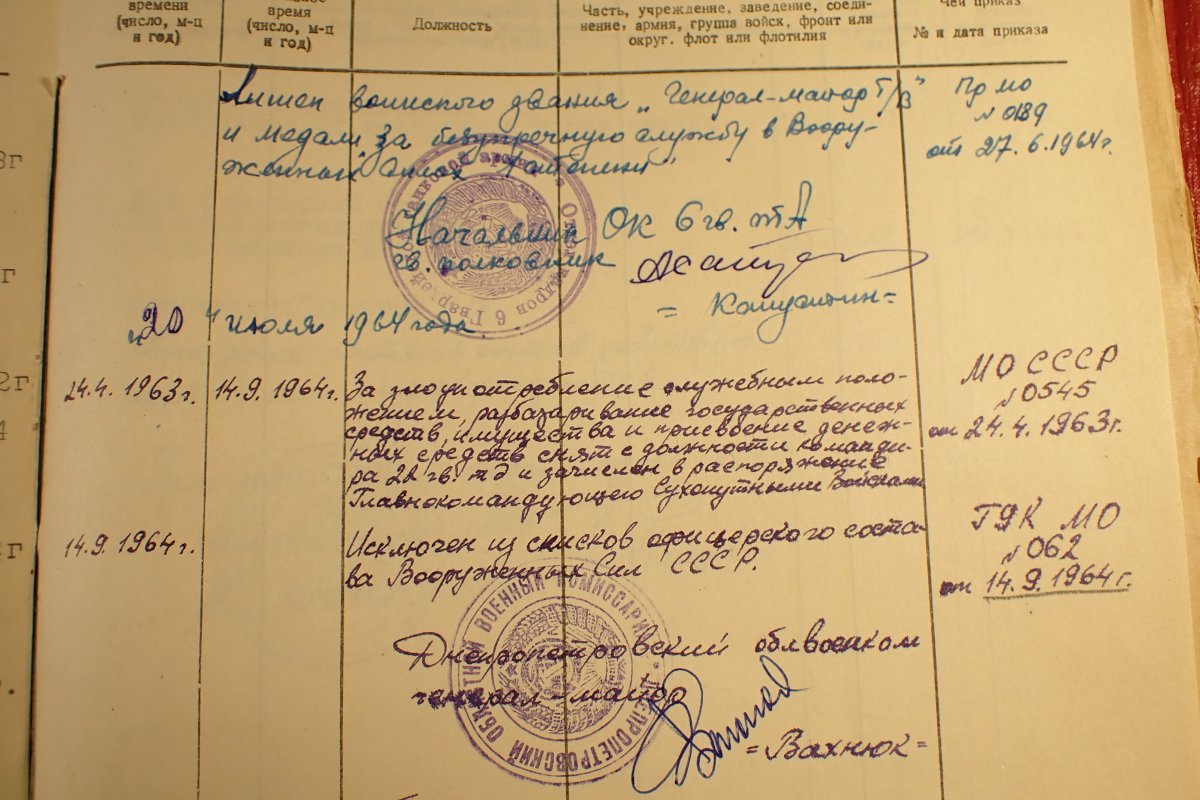 времени
(число, м-ц
и год)
время
(число, м-ц
и год)
Должность
Часть, учреждение, заведение, соеди-
нение, армия, группа войск, фронт или
округ. флот или флотилия
Чей приказ
№ и дата приказа
Лишен воинского звания „Генерал-майор т/в"
и медали „За безупречную службу в Воору-
женных Силах
Пр МО
№ 0189
от 27.6.1964г.
Начальник ОК 6 гв. ТА
гв. полковник
„20" июля 1964 года.
24.4.1963г.
14.9.1964г.
За злоупотребление служебным поло-
жением, разбазаривание государственных
средств, имущества и присвоение денеж-
ных средств снят с должности команди-
ра 22 гв. тд и зачислен в распоряжение
Главнокомандующего Сухопутными Войсками
МО СССР
№ 0545
от 24.4.1963г.
14.9.1964г.
Исключен из списков офицерского соста-
ва Вооруженных Сил СССР.
ГУК МО
№ 062
от 14.9.1964г.
Днепропетровский облвоенком
генерал-майор
=Вахнюк=
ДНЕПРОПЕТРОВСКИЙ ОБЛАСТНОЙ ВОЕННЫЙ КОМИССАРИАТ